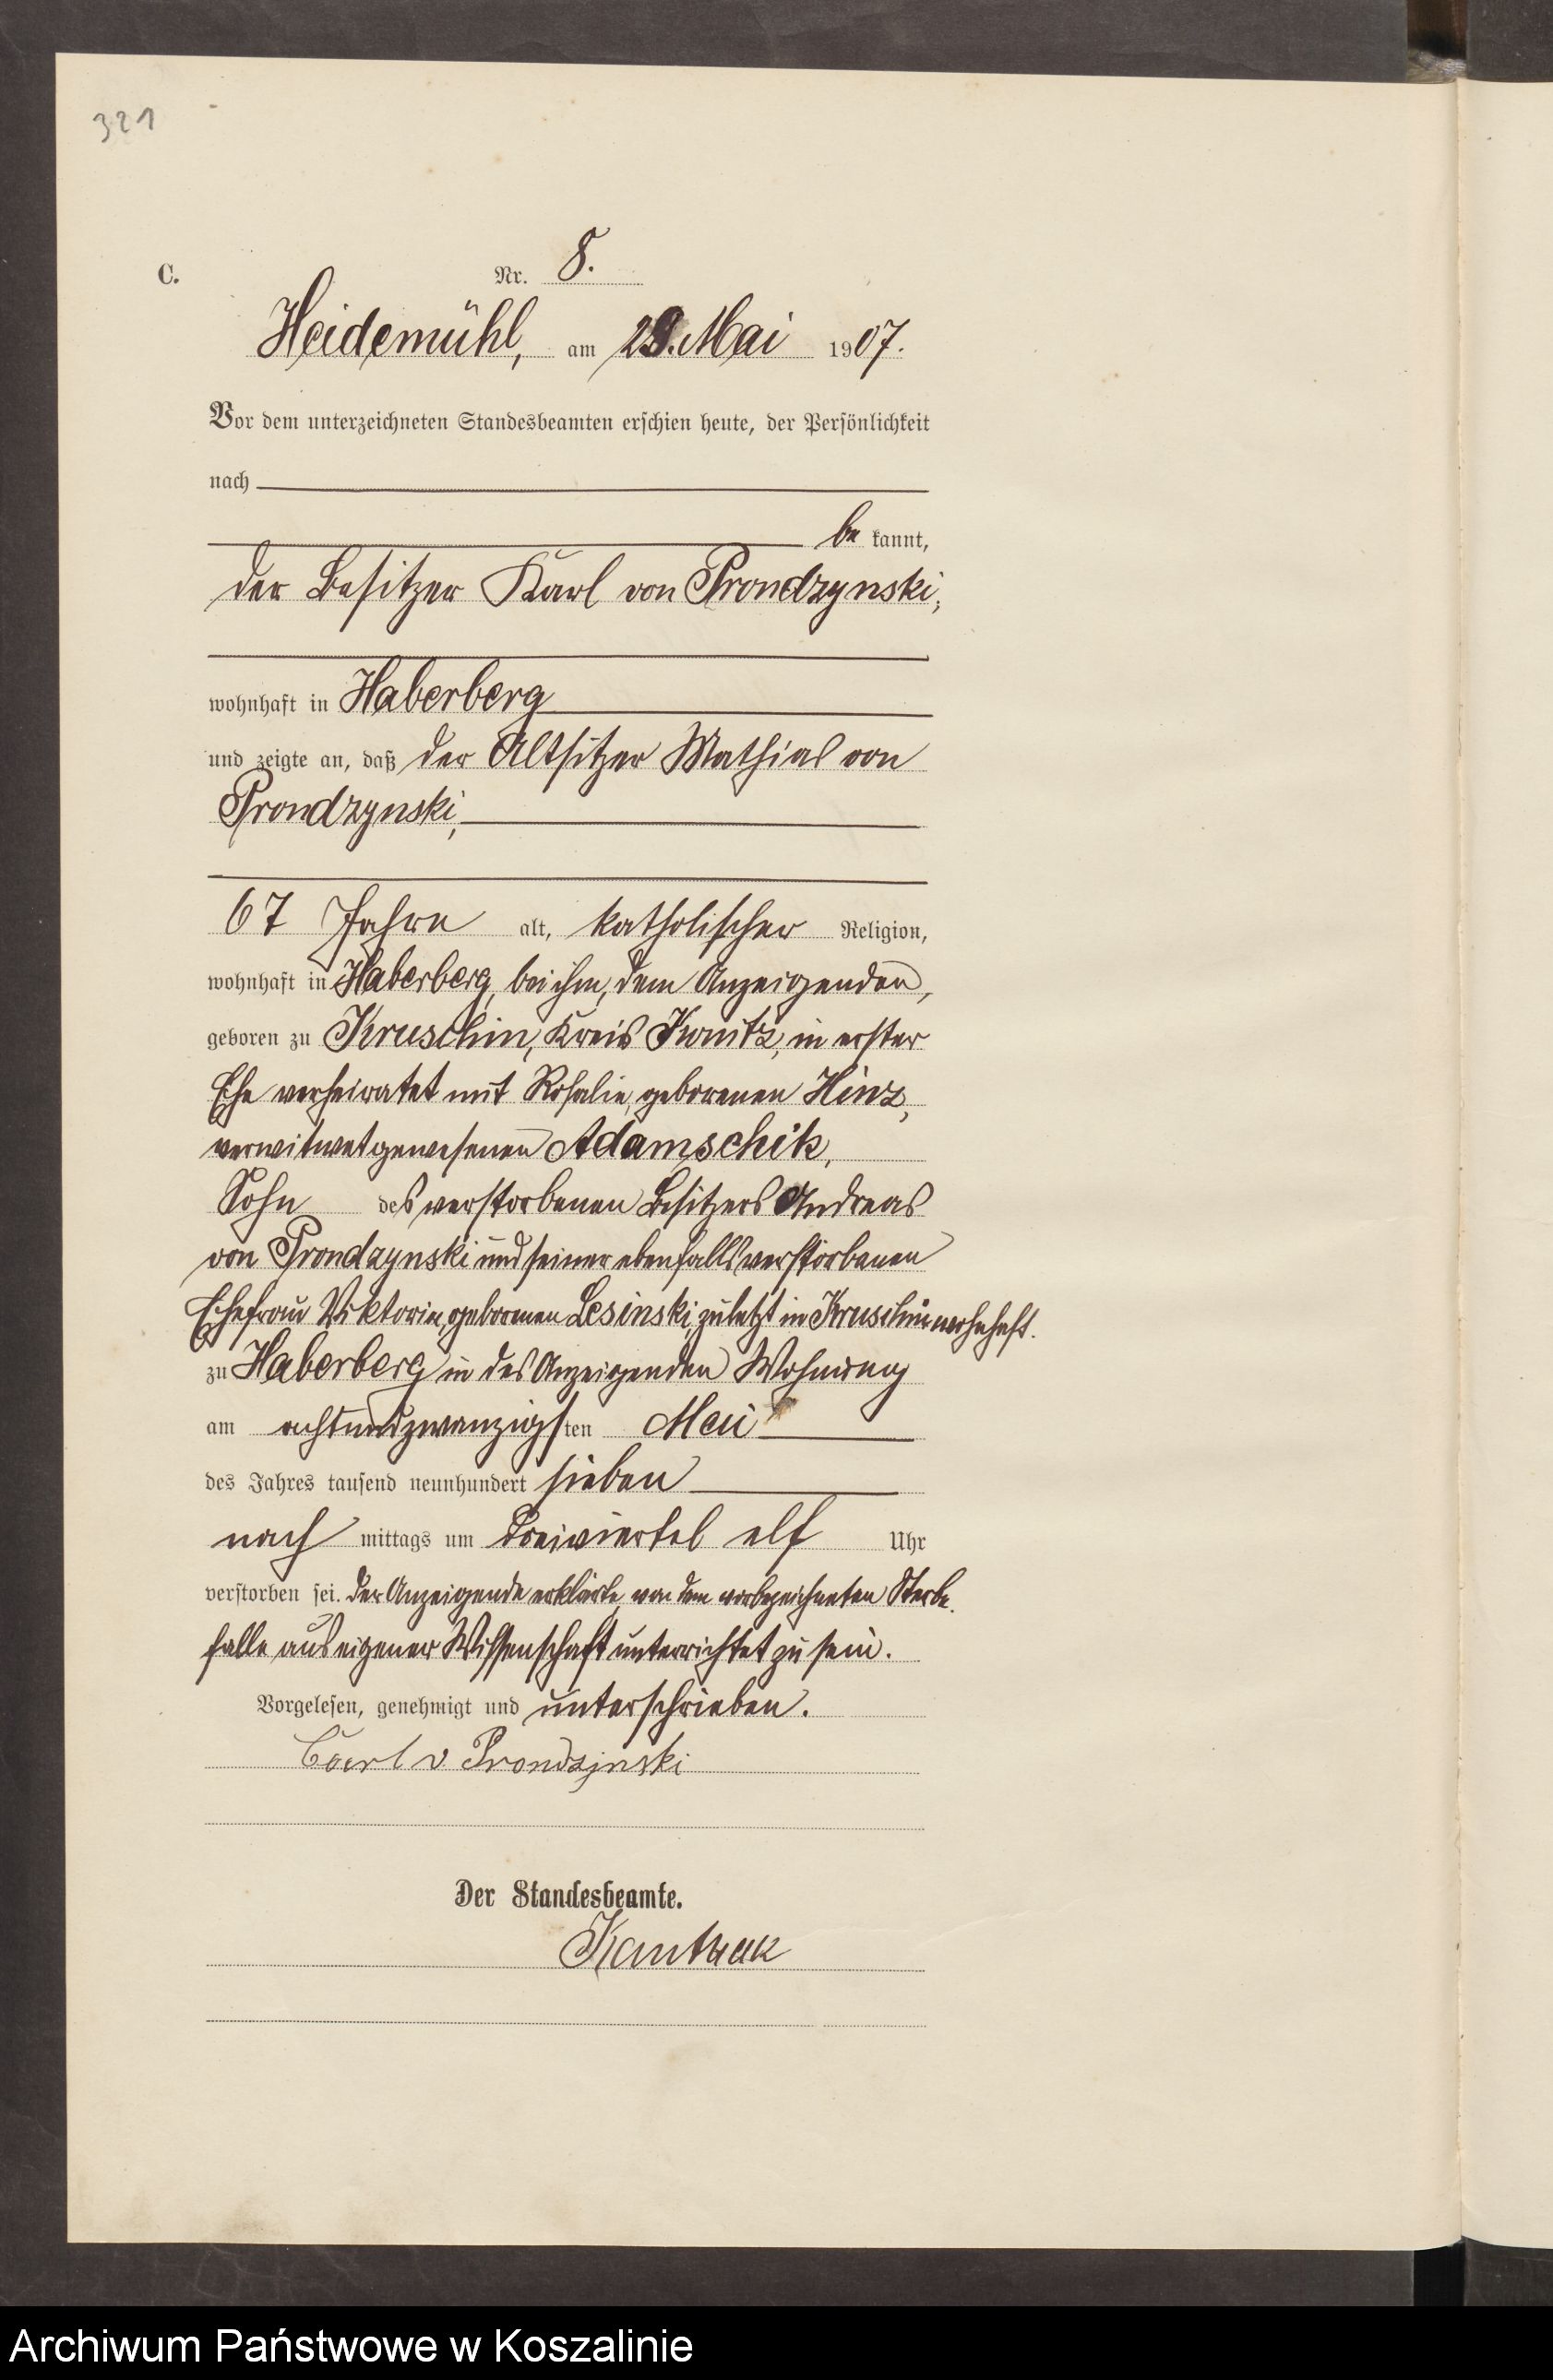 321
C. Nr. 8.
Heidemühl, am 29. Mai 1907.
Vor dem unterzeichneten Standesbeamten erschien heute, der Persönlichkeit
nach
be kannt,
der Besitzer Karl von Prondzynski,
wohnhaft in Haberberg
und zeigte an, daß der Altsitzer Mathias von
Prondzynski,
67 Jahre alt, katholischer Religion,
wohnhaft in Haberberg, bei ihm, dem Anzeigenden,
geboren zu Kruschin, Kreis Konitz, in erster
Ehe verheiratet mit Rosalie, geborenen Hinz,
verwitwet gewesenen Adamschik,
Sohn des verstorbenen Besitzers Andreas
von Prondzynski und seiner ebenfalls verstorbenen
Ehefrau Viktoria, geborenen Lesinski, zuletzt in Kruschin wohnhaft.
zu Haberberg in des Anzeigenden Wohnung
am achtundzwanzigsten Mai
des Jahres tausend neunhundert sieben
nach mittags um dreiviertel elf Uhr
verstorben sei. Der Anzeigende erklärte, von dem vorbezeichneten Sterbe-
falle aus eigener Wissenschaft unterrichtet zu sein.
Vorgelesen, genehmigt und unterschrieben.
Carl v Prondzjnski
Der Standesbeamte.
Archiwum Państwowe w Koszalinie